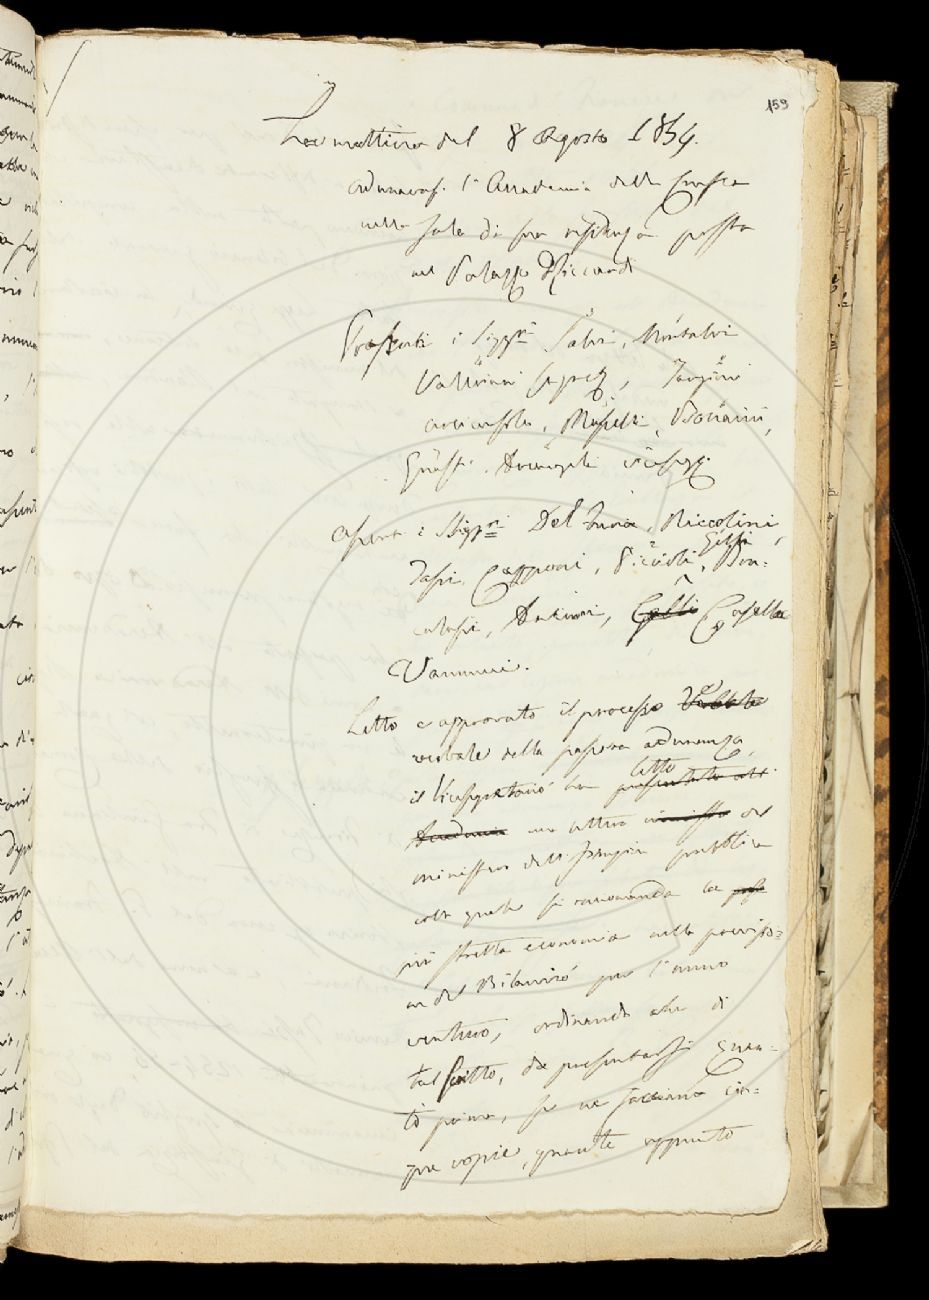 159
La mattina del 8 Agosto 1854.
adunavasi l'Accademia della Crusca
nella sala di sua residenza posta
nel Palazzo Riccardi
Presenti i Sigg.ri Salvi, Montalvi
Valeriani, Targioni
arciconsolo, Masselli, Bonaini,
Giusti, Arcangeli vicesegr.
Assenti i Sigg.ri Del Furia, Niccolini,
Gelli
Tassi, Capponi, Piccioli, Bon-
calossi, Antinori, Casella
Vannucci.
Letto e approvato il processo Verbale
verbale della passata adunanza,
letto
il Vicesegretario ha presentato all'
Accademia una lettera del
ministero dell'Istruzione pubblica
colla quale si raccomanda la
più stretta economia nella previsio-
ne del Bilancio per l'anno
venturo, ordinando che di
tal scritto, da presentarsi quan-
to prima, se ne facciano cin-
que copie, quante appunto